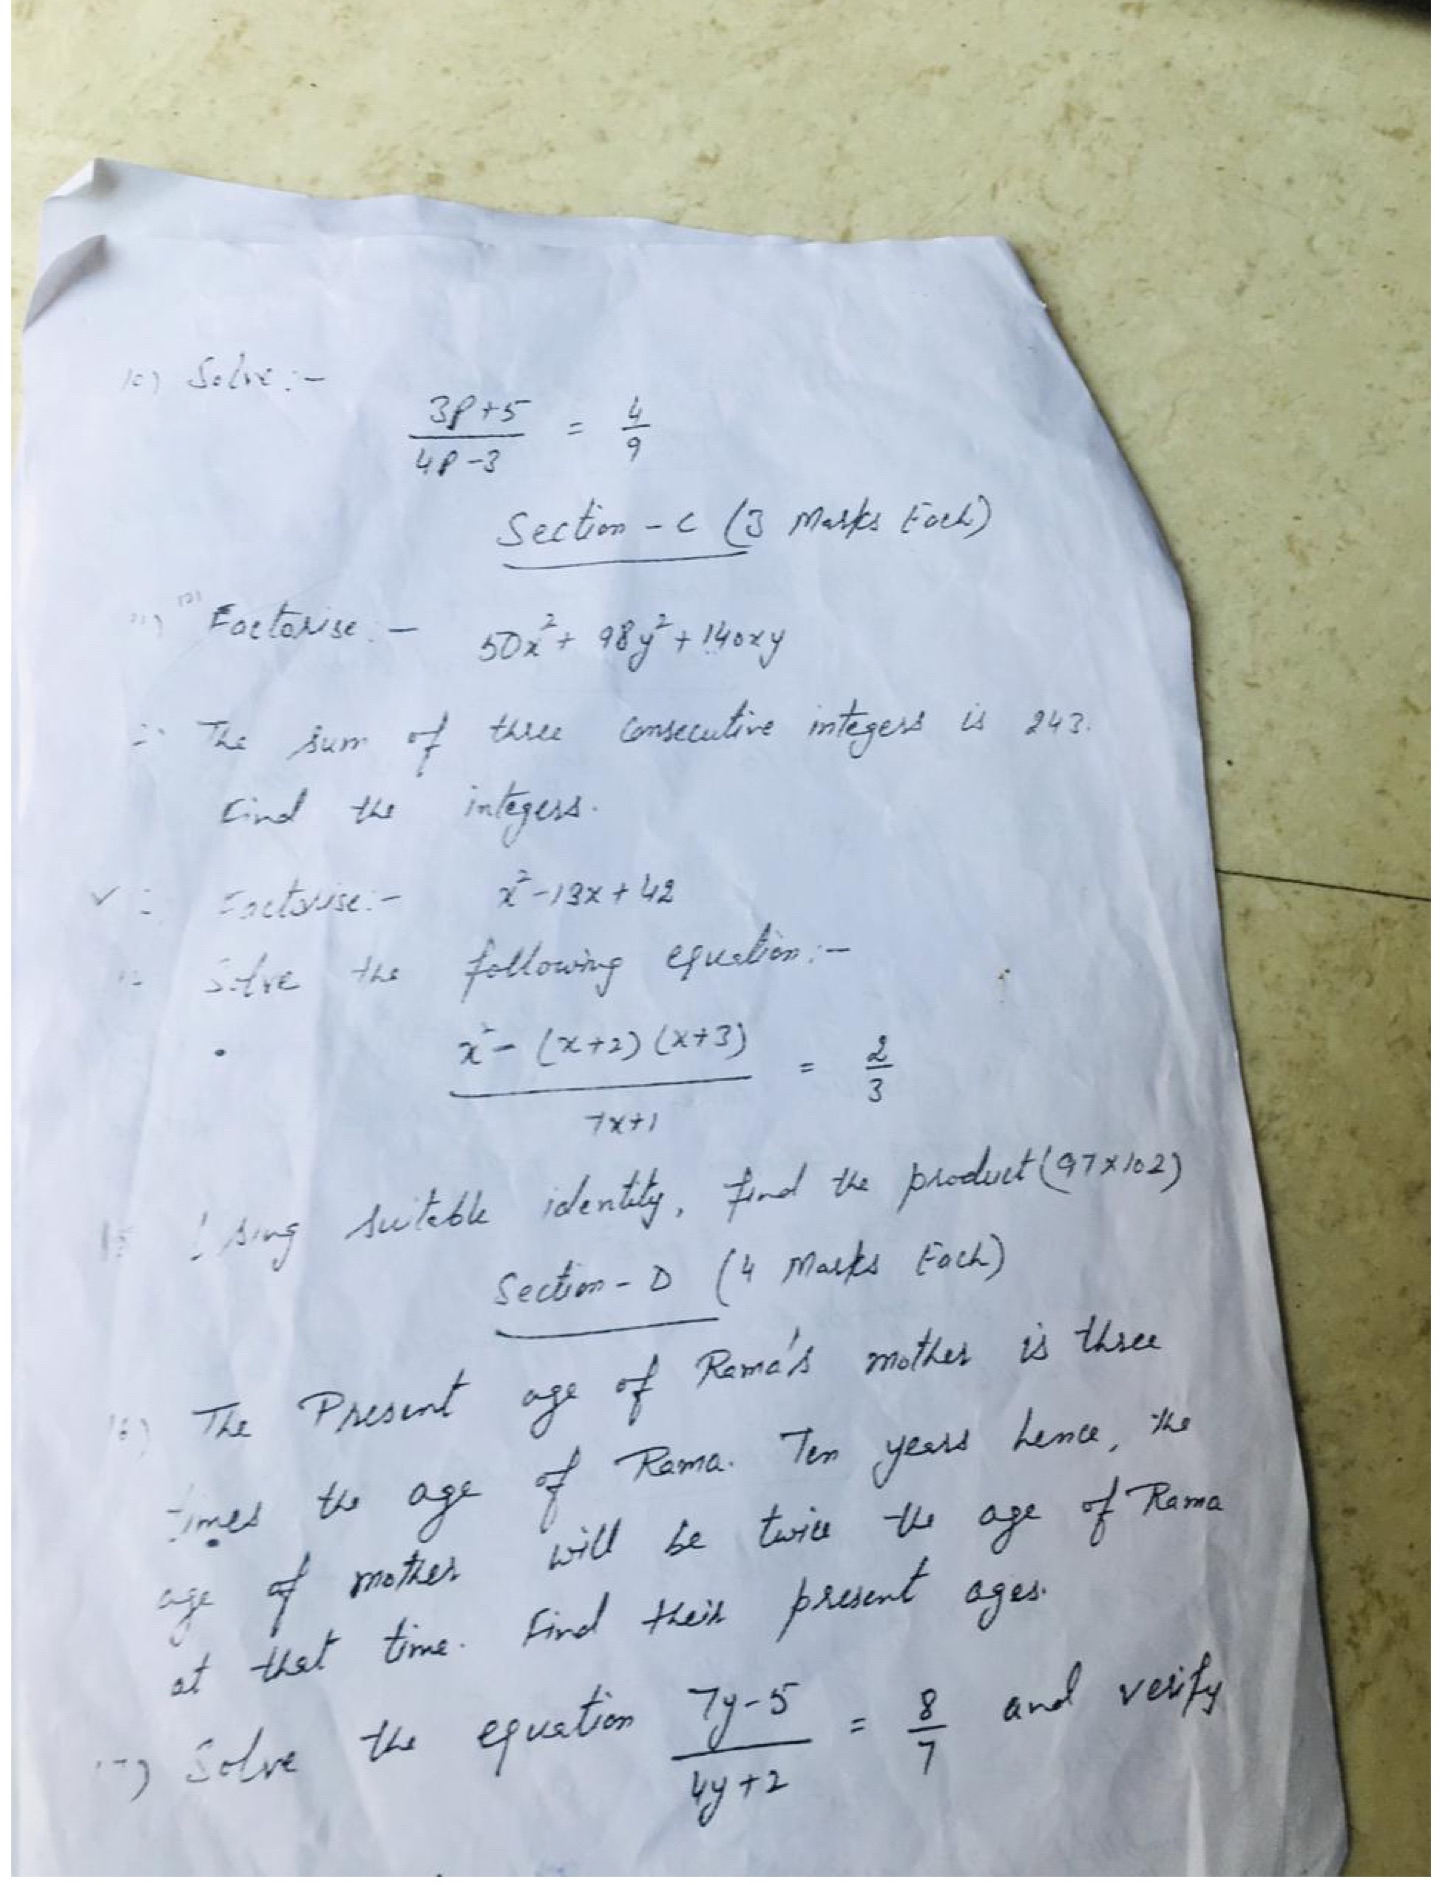 10) Solve :-
3P+5 / 4P-3 = 4/9
Section - C (3 Marks Each)
11) Factorise :- 50x² + 98y² + 140xy
The sum of three consecutive integers is 243.
Find the integers.
Factorise :- x² - 13x + 42
Solve the following equation :-
x² - (x+2) (x+3) / 7x+1 = 2/3
15 Using suitable identity, find the product (97 x 102)
Section - D (4 Marks Each)
16) The Present age of Rama's mother is three
times the age of Rama. Ten years hence, the
age of mother will be twice the age of Rama
at that time. Find their present ages.
17) Solve the equation 7y-5 / 4y+2 = 8/7 and verify